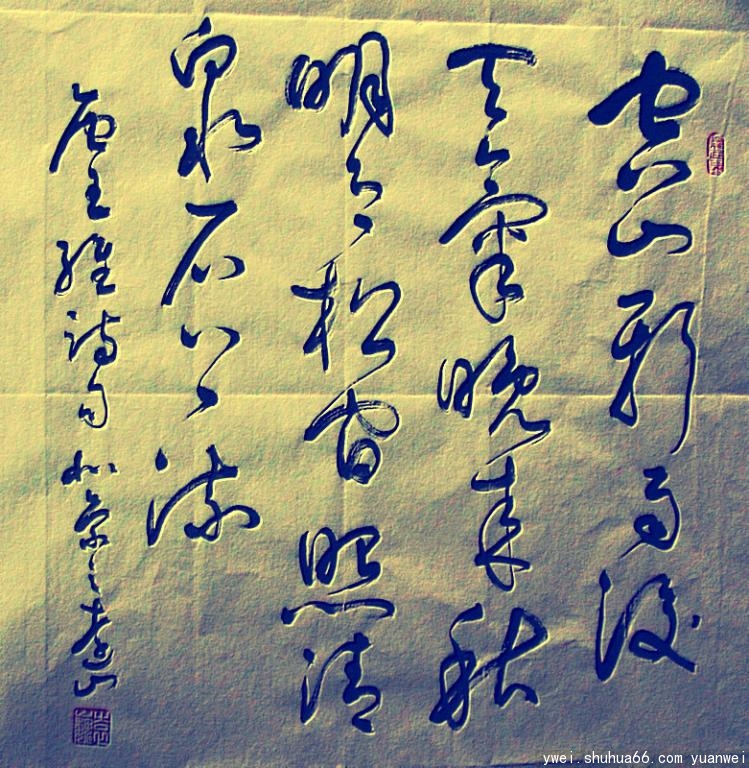 空山新雨後
天氣晚来秋
明月松間照清
泉石上流
唐王維詩句
ywei.shuhua66.com yuanwei